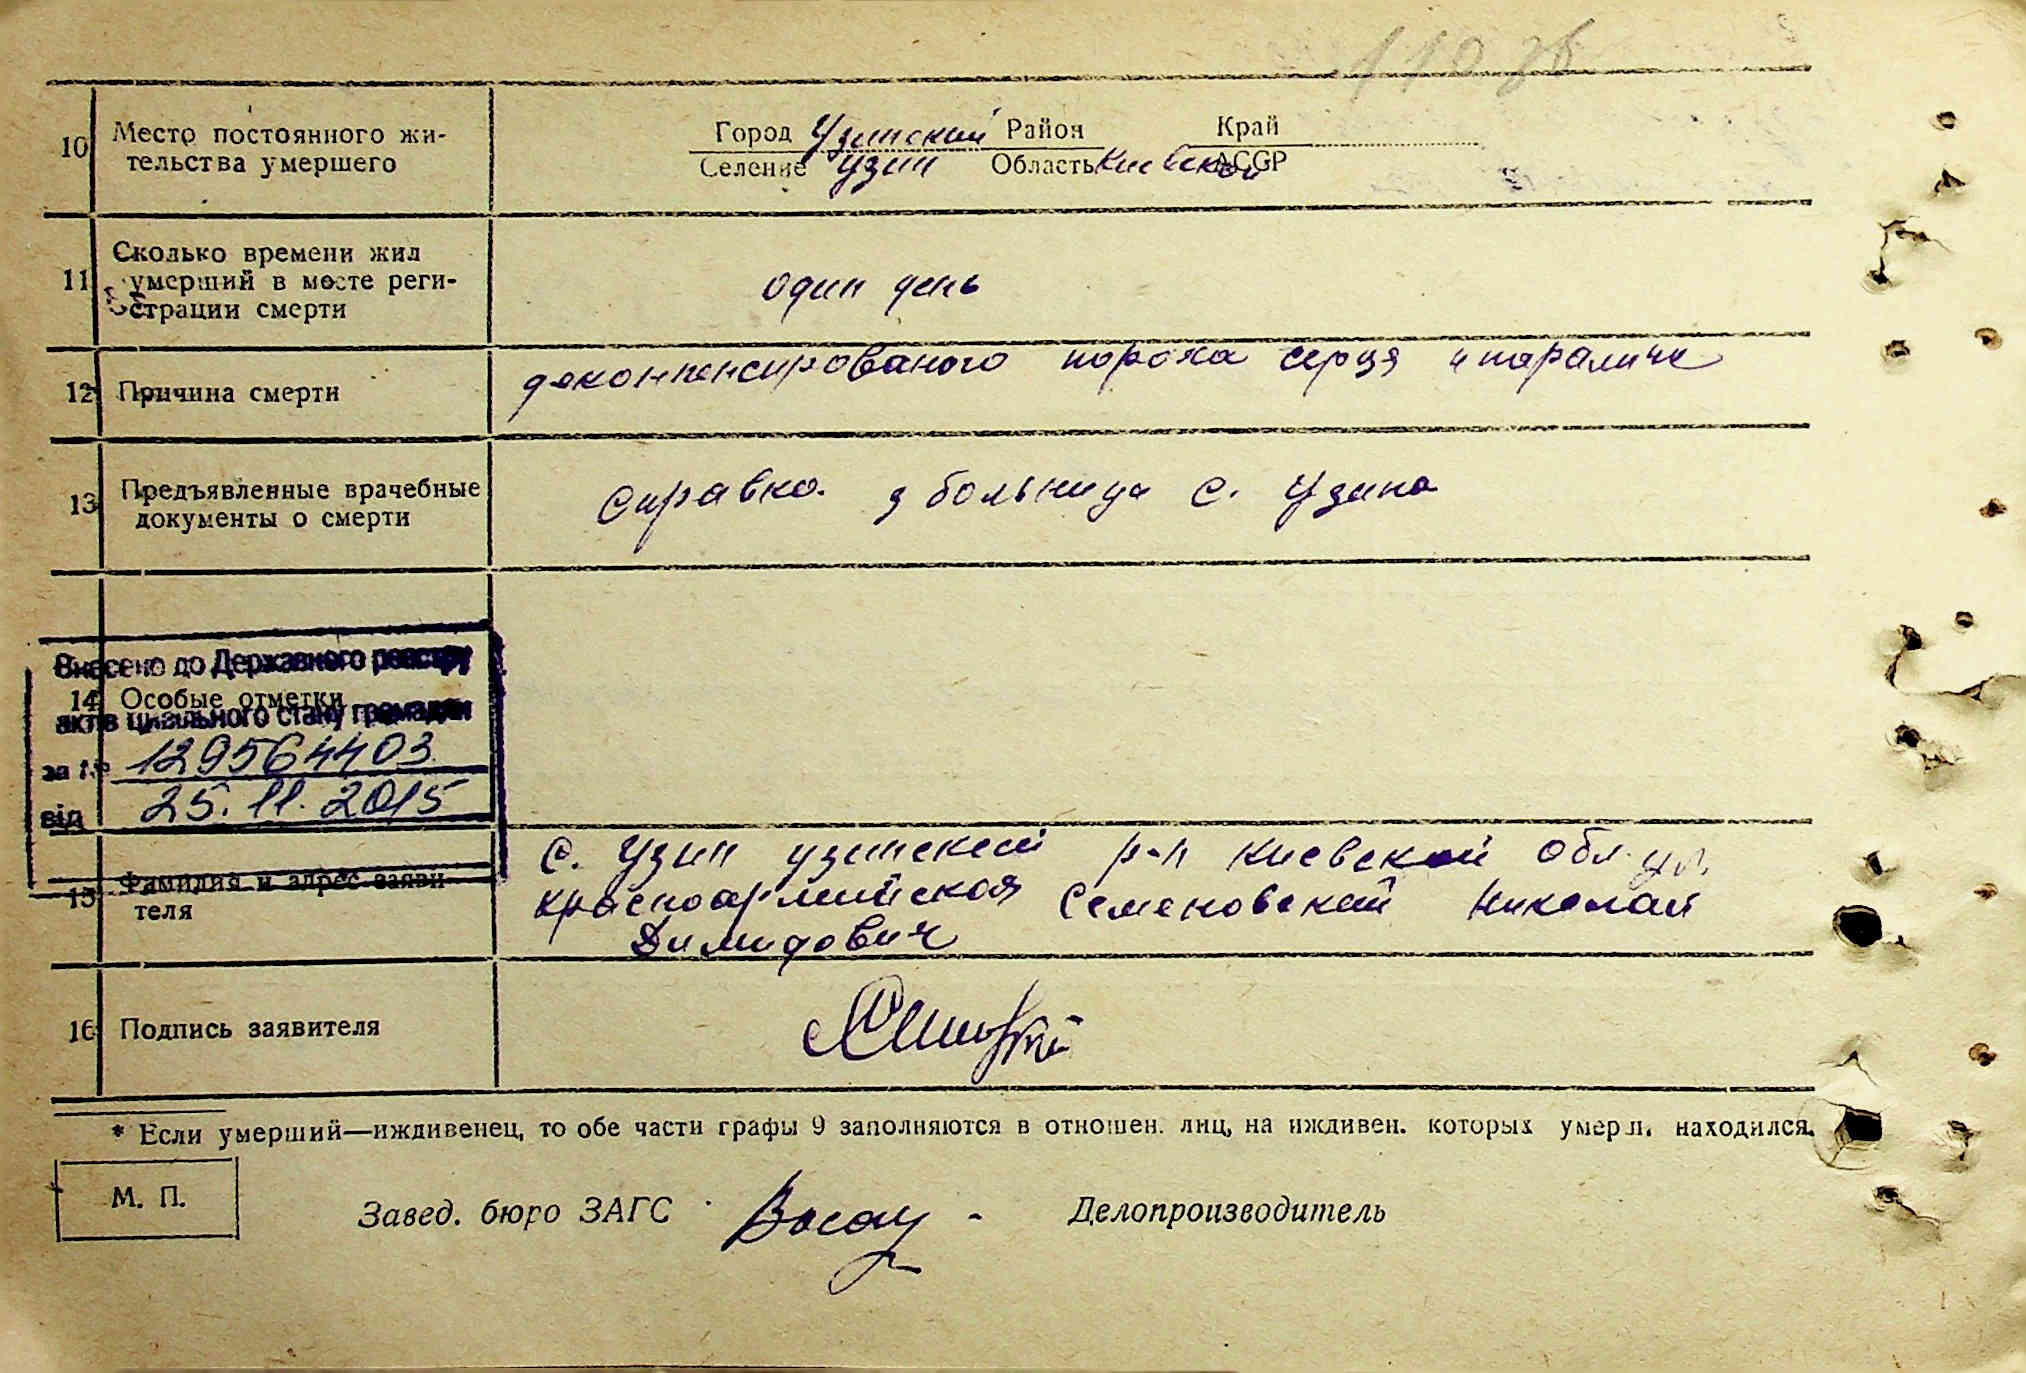 10 Место постоянного жи-
тельства умершего
Город Узинский Район Край
Селение Узин Область Киевской АССР
11 Сколько времени жил
умерший в месте реги-
страции смерти
один день
12 Причина смерти
декомпенсированого порока серця и паралича
13 Предъявленные врачебные
документы о смерти
Справка з больница с. Узина
Внесено до Державного реєстру
14 Особые отметки
актів цивільного стану громадян
за № 129564403
від 25.11.2015
15 Фамилия и адрес заяви-
теля
с. Узин узинский р-н Киевской обл. ул.
красноармийская Семеновский Николай
Димидович
16 Подпись заявителя
* Если умерший—иждивенец, то обе части графы 9 заполняются в отношен. лиц, на иждивен. которых умерл. находился.
М. П.
Завед. бюро ЗАГС
Делопроизводитель